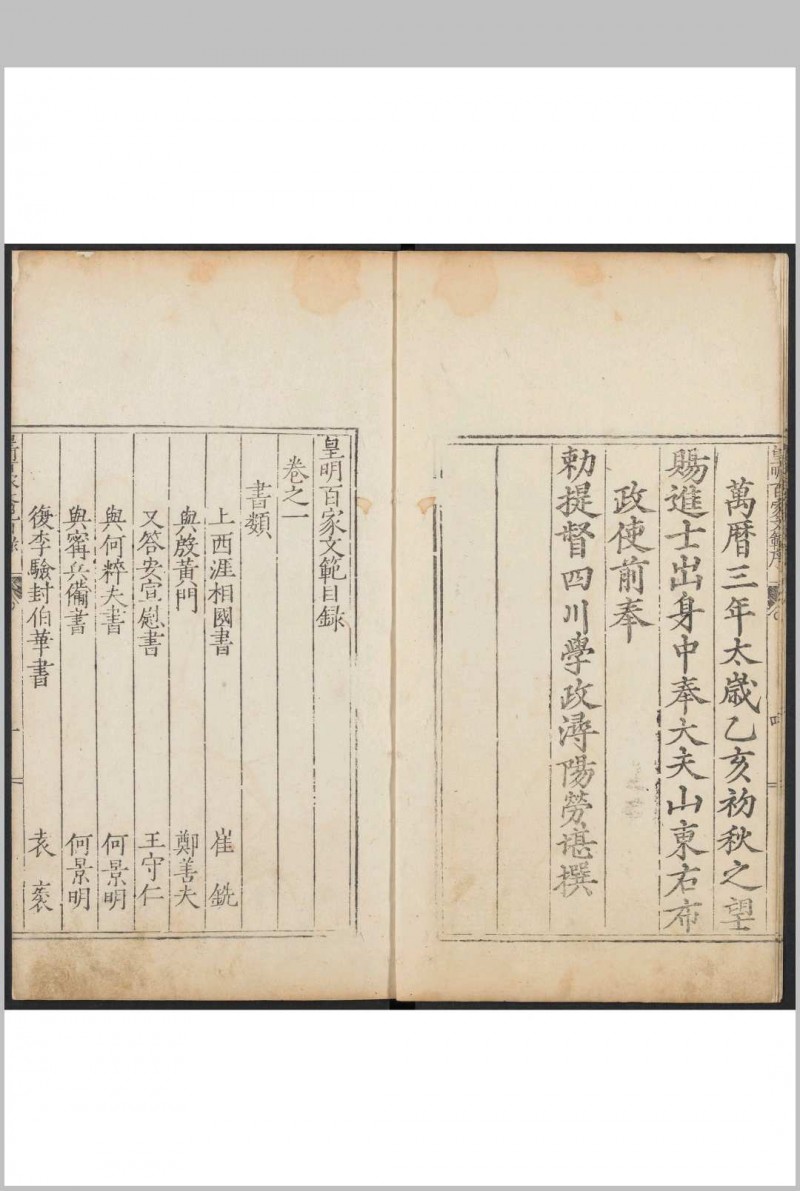 皇明百家文範序
四
萬曆三年太歲乙亥初秋之望
賜進士出身中奉大夫山東右布
政使前奉
勑提督四川學政潯陽勞堪撰
皇明百家文範目録
卷之一
書類
上西涯相國書 崔銑
與殷黃門 鄭善夫
又答安宣慰書 王守仁
與何粹夫書 何景明
與寗兵備書 何景明
復李驗封伯華書 袁袠
一